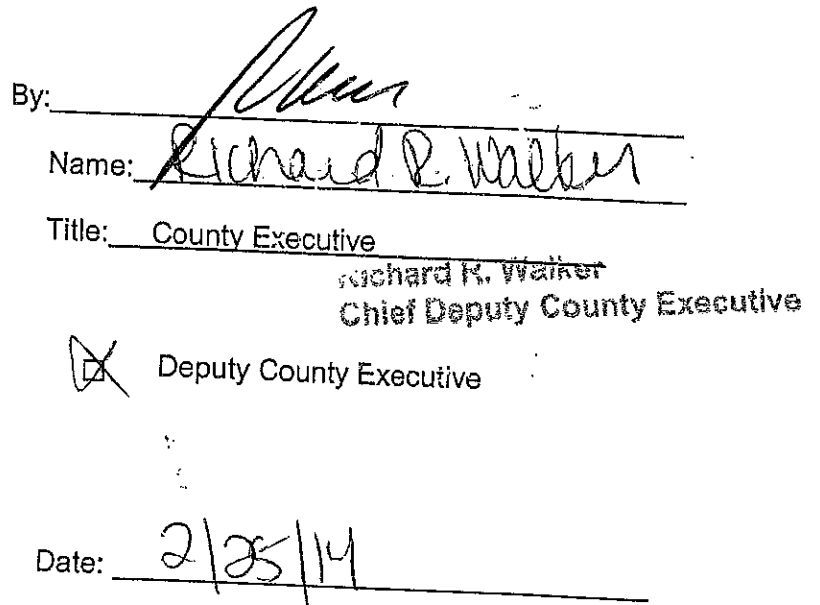 By:
Name: Richard R. Walker
Title: County Executive
Richard R. Walker
Chief Deputy County Executive
Deputy County Executive
Date: 2/25/14